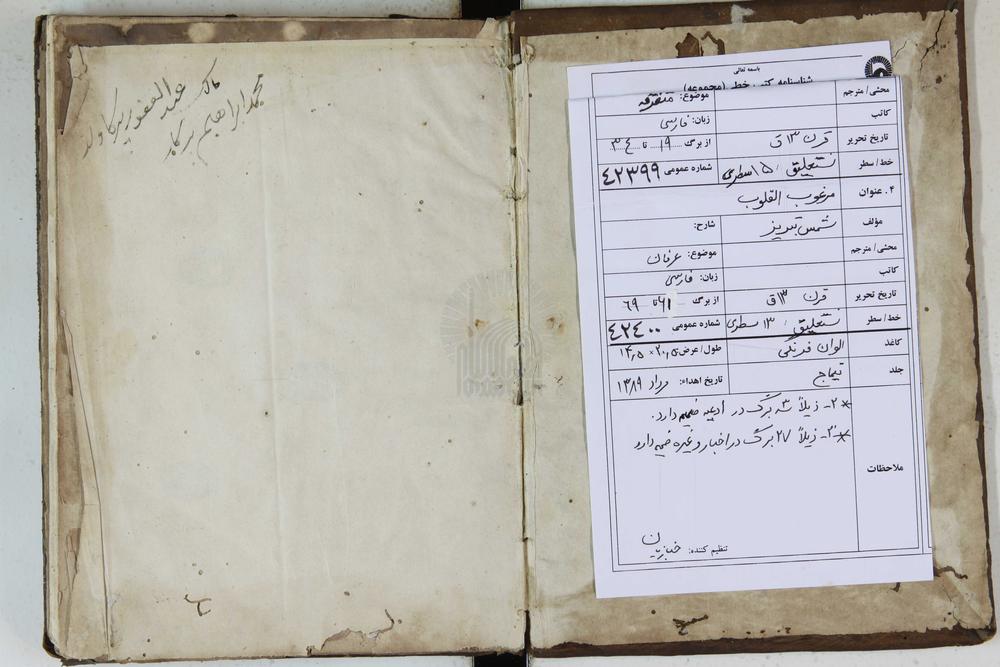 باسمه تعالی
شناسنامه کتب خطی (مجموعه)
محشی/ مترجم
موضوع: متفرقه
کاتب
زبان: فارسی
تاریخ تحریر قرن ۱۳ ق از برگ ۱۹ تا ۳۴
خط/ سطر نستعلیق / ۱۵ سطری شماره عمومی ۴۲۳۹۹
۴. عنوان مرغوب القلوب
مؤلف شمس تبریز شارح:
محشی/ مترجم موضوع: عرفان
کاتب زبان: فارسی
تاریخ تحریر قرن ۱۳ ق از برگ ۶۱ تا ۶۹
خط/ سطر نستعلیق / ۱۳ سطری شماره عمومی ۴۲۴۰۰
کاغذ الوان فرنگی طول/ عرض: ۲۰٫۵ × ۱۴٫۵
جلد تیماج تاریخ اهداء: مرداد ۱۳۸۹
ملاحظات
*۲- ذیلاً سه برگ در ادعیه ضمیمه دارد.
*۳- ذیلاً ۲۷ برگ در اخبار و غیره ضمیمه دارد
تنظیم کننده: خبازیان
مالک عبد الغفور
محمد ابراهیم